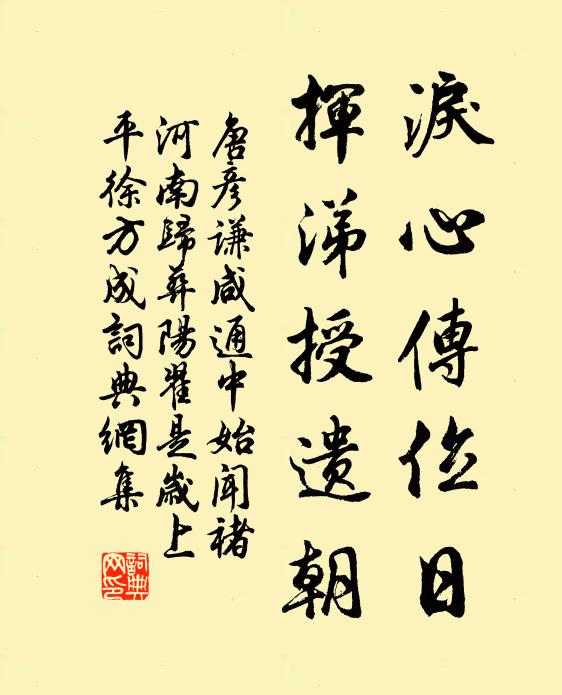 淚心傳位日
揮涕授遺朝
唐彥謙咸通中始聞褚
河南歸葬陽翟是歲上
平徐方成詞典網集
詞典
网印